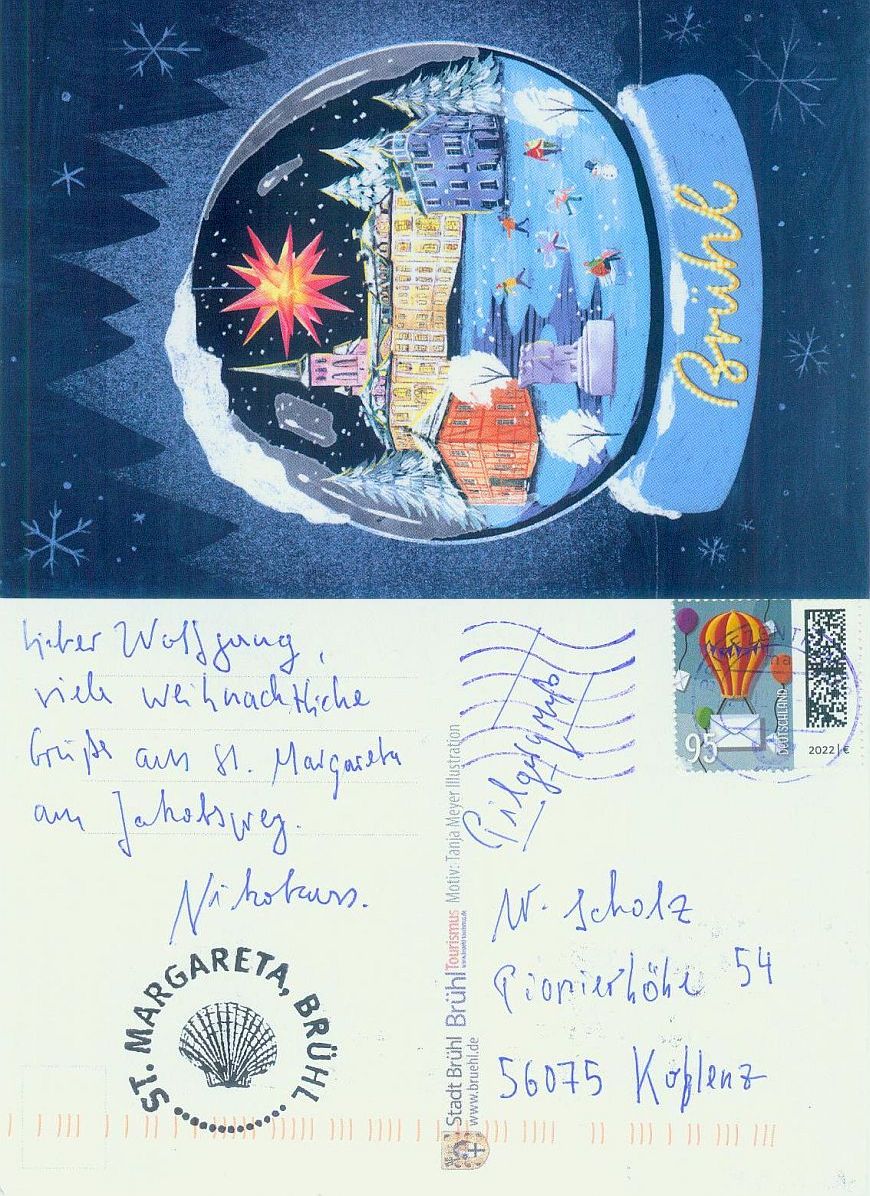 Brühl
Lieber Wolfgang,
viele weihnachtliche
Grüße aus St. Margareta
am Jakobsweg.
Nikolaus.
ST. MARGARETA, BRÜHL
Stadt Brühl Brühl Tourismus Motiv: Tanja Meyer Illustration
www.bruehl.de
Pilgergruß
95
DEUTSCHLAND
2022 | €
W. Scholz
Pionierhöhe 54
56075 Koblenz